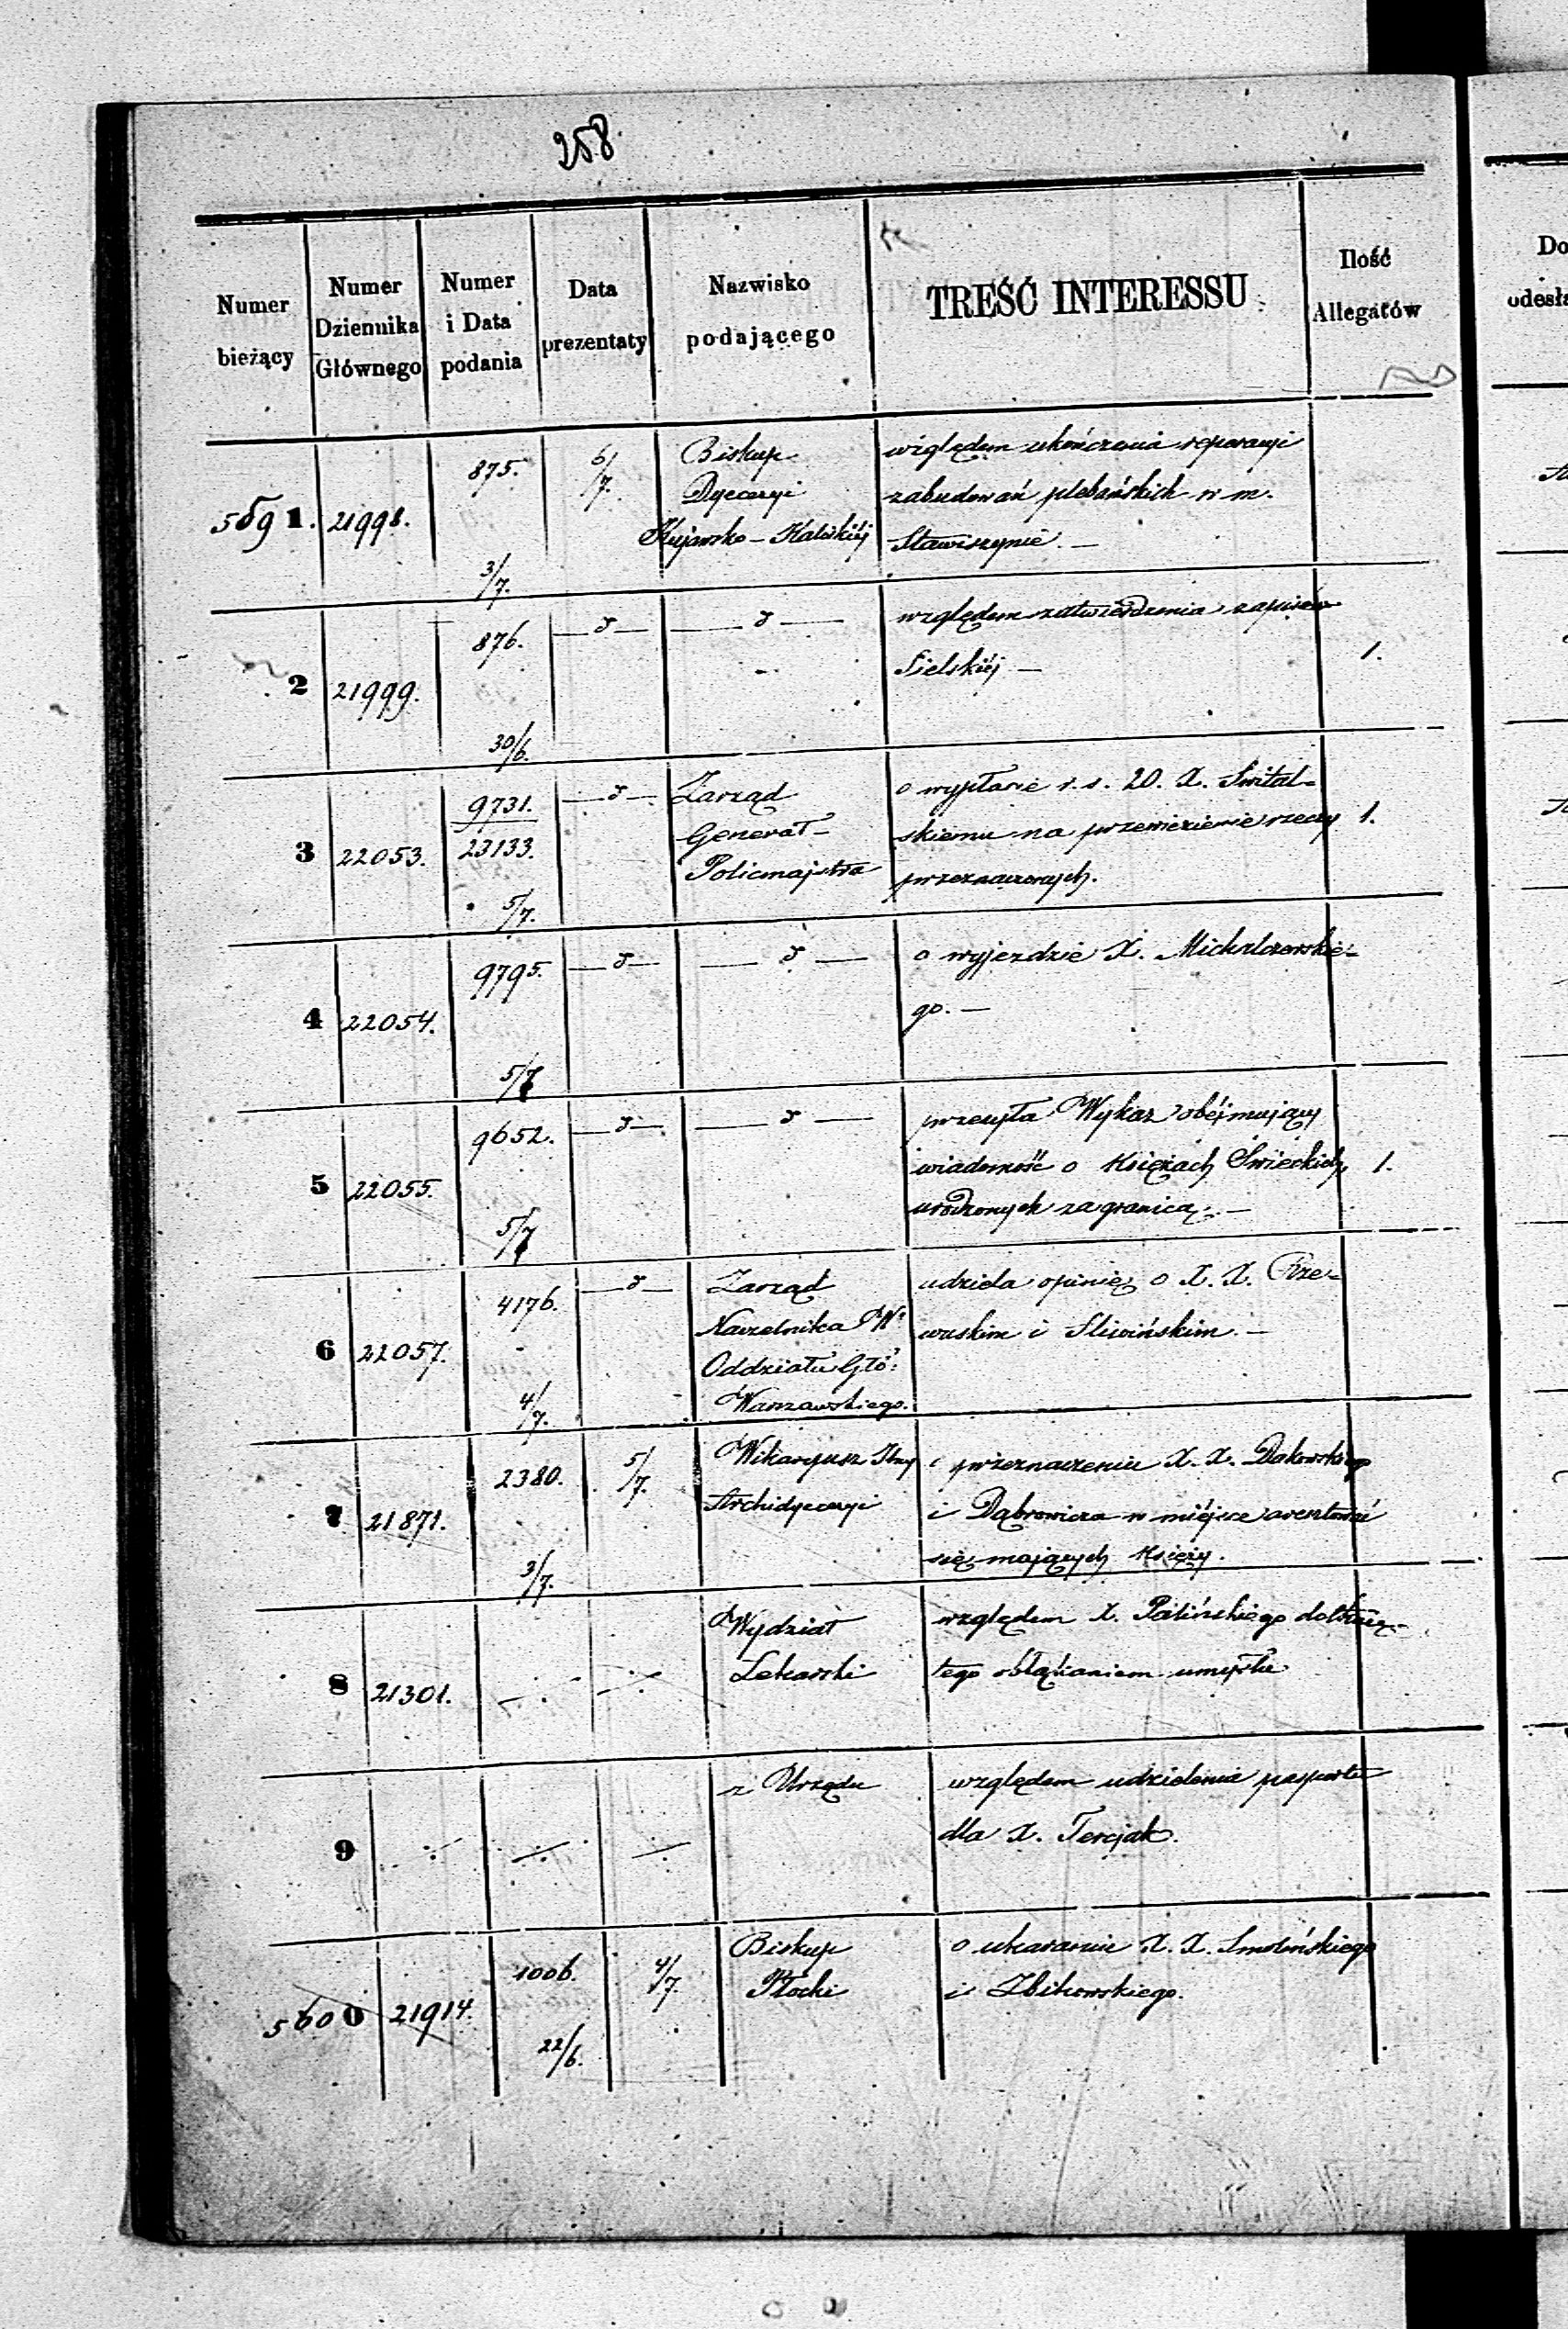 258
Numer bieżący
Numer Dziennika Głównego
Numer i Data podania
Data prezentaty
Nazwisko podającego
TREŚĆ INTERESSU
Ilość Allegatów
5591. 21998. 875. 3/7. 6/7.
Biskup
Dyecezyi
Kujawsko-Kaliskiéj
względem ukończenia reperacyi
zabudowań plebańskich w m.
Stawiszynie. —
2 21999. 876. 30/6. — d — — d —
względem zatwierdzenia zapisów
Sielskiéj — 1.
3 22053. 9731. 23133. 5/7. — d —
Zarząd
Generał-
Policmajstra
o wypłacie r. s. 20. X. Śwital-
skiemu na przewiezienie rzeczy 1.
przeznaczonych.
4 22054. 9795. 5/7 — d — — d —
o wyjezdzie X. Michalczewskie-
go. —
5 22055. 9652. 5/7 — d — — d —
przesyła Wykaz obéjmujący
wiadomość o Księżach Świeckich 1.
urodzonych zagranicą. —
6 22057. 4176. 4/7. — d —
Zarząd
Naczelnika W.
Oddziału Głó:
Warszawskiego.
udziela opinię o X. X. Rze-
wuskim i Śliwińskim. —
7 21871. 2380. 3/7. 5/7.
Wikaryusz
Archidyecezyi
o przeznaczeniu X. X. Dakowskiego
i Dąbrowicza w miéjsce aresztować
się mających Księży.
8 21301.
Wydział
Lekarski
względem X. Palińskiego dotknię-
tego obłąkaniem umysłu
9
z Urzędu
względem udzielenia pasportu
dla X. Tercjak.
5600 21914. 1006. 22/6. 4/7.
Biskup
Płocki
o ukaraniu X. X. Smoleńskiego
i Zbikowskiego.
Do
odesła